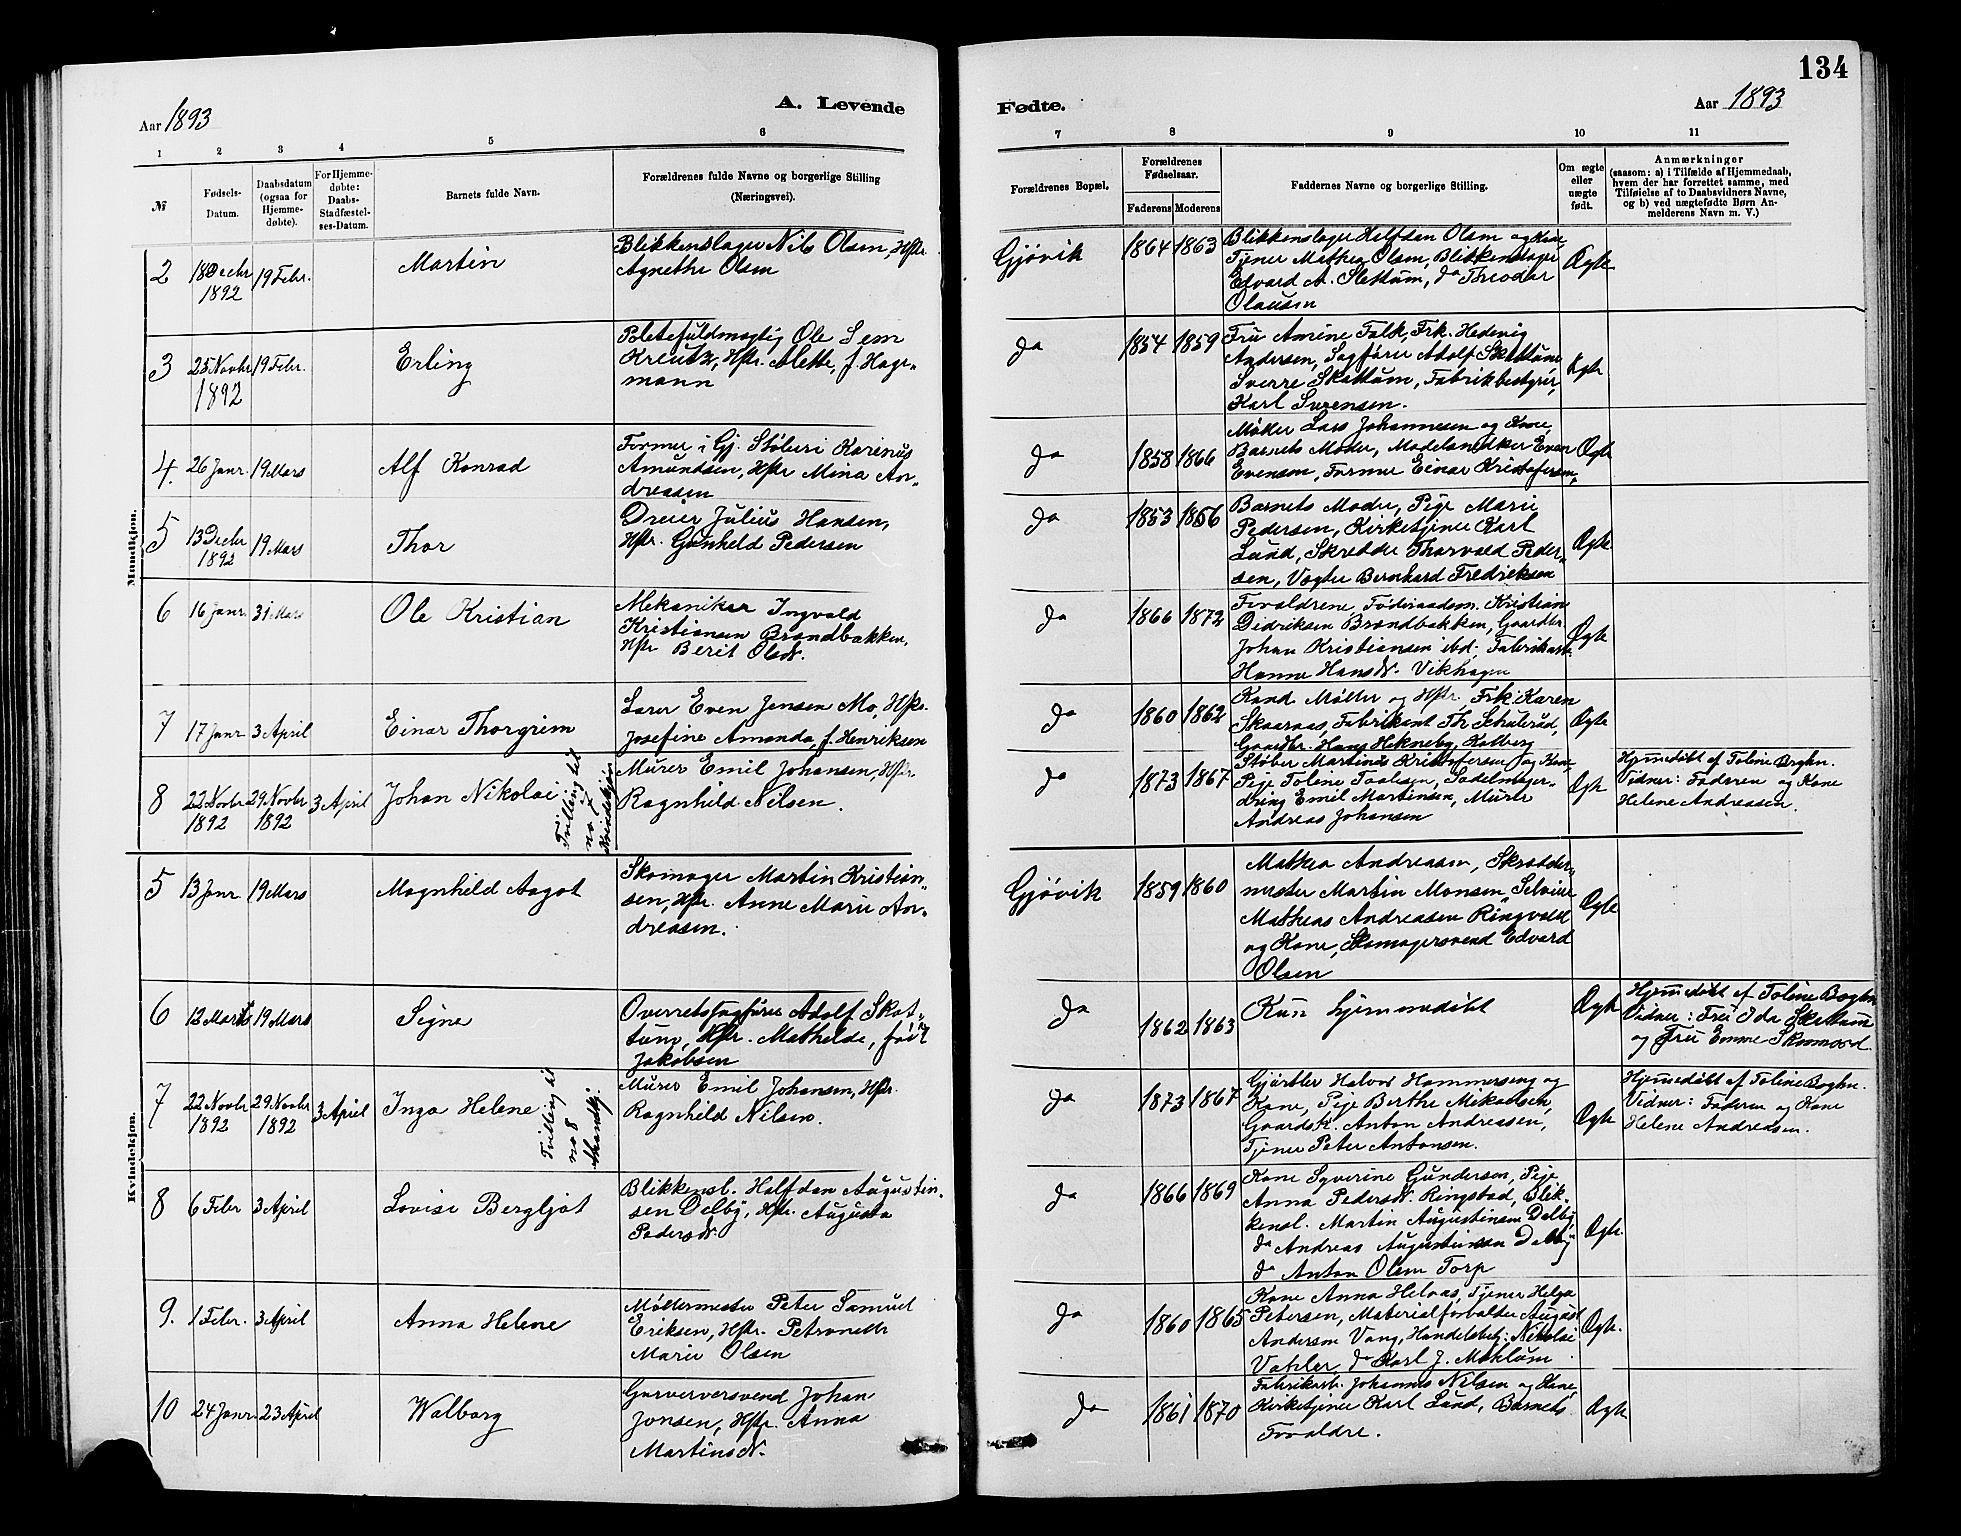 134
Aar 1893
A. Levende
Fødte.
Aar 1893
1 2 3 4 5 6 7 8 9 10 11
№
Fødsels-
Datum.
Daabsdatum
(ogsaa for
Hjemme-
døbte).
For Hjemme-
døbte:
Daabs-
Stadfæstel-
ses-Datum.
Barnets fulde Navn.
Forældrenes fulde Navne og borgerlige Stilling
(Næringsvei).
Forældrenes Bopæl.
Forældrenes
Fødselsaar.
Faderens Moderens
Faddernes Navne og borgerlige Stilling.
Om ægte
eller
uægte
født.
Anmærkninger
(saasom: a) i Tilfælde af Hjemmedaab,
hvem der har forrettet samme, med
Tilføielse af to Daabsvidners Navne,
og b) ved uægtefødte Børn An-
melderens Navn m. V.)
Mandkjøn.
2
18 Decbr
1892
19 Febr.
Martin
Blikkenslager Nils Olsen, Hstr
Agnethe Olsen
Gjøvik
1864 1863
Blikkenslager Halfdan Olsen og Kone
Tjener Mathea Olsen, Blikkenslager
Edvard A. Slettum, do Theodor
Olausen
Ægte
3
25 Novbr
1892
19 Febr.
Erling
Politifuldmægtig Ole Sem
Kreutz, Hstr. Alette, f. Hage-
mann
do
1854 1859
Fru Amine Falk, Frk. Hedevig
Andersen, Sagfører Adolf Skattum
Sverre Skattum, Fabrikbestyrer
Karl Surensen.
Ægte
4.
26 Janr.
19 Mars
Alf Konrad
Former i Gj. Støberi Karenus
Amundsen, Hstr Mina An-
dreasen
do
1858 1866
Møller Lars Johannesen og Kone,
Barnets Moder, Modelsnedker Even
Evensen, Former Einar Kristofersen,
Ægte
5
13 Decbr
1892
19 Mars
Thor
Dreier Julius Hansen,
Hstr. Gunhild Pedersen
do
1853 1856
Barnets Moder, Pige Marie
Pedersen, Kirketjener Karl
Lund, Skredder Thorvald Peder-
sen, Vægter Bernhard Fredriksen
Ægte.
6
16 Janr.
31 Mars
Ole Kristian
Mekaniker Ingvald
Kristiansen Brandbakken,
Hstr Berit Olsdr.
do
1866 1872
Forældrene, Føderaadsm. Kristian
Didriksen Brandbakken, Gaardbr.
Johan Kristiansen ibd.; Fabrikarb.
Hanne Hansdr. Vikhagen
Ægte
7
17 Janr.
3 April
Einar Thorgrim
Lærer Even Jensen Mo, Hstr.
Josefine Amanda, f. Henriksen
do
1860 1862
Kand Møller og Hstr, Frk. Karen
Skaaraas, Fabrikant Th. Schulerud,
Gaardbr. Hans Hekneby, Kolberg
Ægte
8
22 Novbr
1892
29. Novbr
1892
3 April
Johan Nikolai
Tvilling til
no 7
Kvindekjøn
Murer Emil Johansen, Hstr
Ragnhild Nilsen.
do
1873 1867
Støber Martinus Kristofersen og Kone,
Pige Toline Paalsen, Sadelmager-
dreng Emil Martinsen, Murer
Andreas Johansen
Ægte
Hjemmedøbt af Toline Boghn.
Vidner: Faderen og Kone
Helene Andreasen.
Kvindekjøn.
5
13 Janr.
19 Mars
Magnhild Aagot
Skomager Martin Kristian-
sen, Hstr. Anne Marie An-
dreasen.
Gjøvik
1859 1860
Mathea Andreasen, Skrædder-
mester Martin Monsen, Selveier
Mathias Andreasen Ringvold
og Kone, Skomagersvend Edvard
Olsen
Ægte
6
12 Marts
19 Mars
Signe
Overretssagfører Adolf Skat-
tum, Hstr. Mathilde, født
Jakobsen
do
1862 1863
Kun hjemmedøbt
Ægte
Hjemmedøbt af Toline Boghn
Vidner: Fru Ida Skattum
og Fru Emme
7
22 Novbr
1892
29 Novbr
1892
3 April
Inga Helene
Tvilling til
no 8
Mandkj.
Murer Emil Johansen, Hstr.
Ragnhild Nilsen.
do
1873 1867
Gjørtler Halvor Hammerseng og
Kone, Pige Berthe Mikaelsen,
Gaardsk. Anton Andreasen,
Tjener Peter Antonsen.
Ægte
Hjemmedøbt af Toline Boghn.
Vidner: Faderen og Kone
Helene Andreasen.
8
6 Febr
3 April
Lovise Bergljot
Blikkensl. Halfdan Augustin-
sen Delby, Hstr. Augusta
Pedersdr.
do
1866 1869
Kone Syverine Gundersen, Pige
Anna Pedersdr. Ringstad, Blik-
kensl. Martin Augustinsen Delby,
do Andreas Augustinsen Delby
do Anton Olsen Torp
Ægte.
9.
1 Febr.
3 April
Anna Helene
Møllermester Peter Samuel
Eriksen, Hstr. Petronelle
Marie Olsen
do
1860 1865
Kone Anna Helaas, Tjener Helga
Petersen, Materialforvalter August
Andersen Vang, Handelsbetj: Nikolai
Vahler, do Karl J. Møklum
Ægte.
10
24 Janr.
23 April
Walborg
Garversvend Johan
Jonsen, Hstr. Anna
Martinsdr.
do
1861 1870
Fabrikarb. Johannes Nilsen og Kone,
Kirketjener Karl Lund, Barnets
Forældre.
Ægte